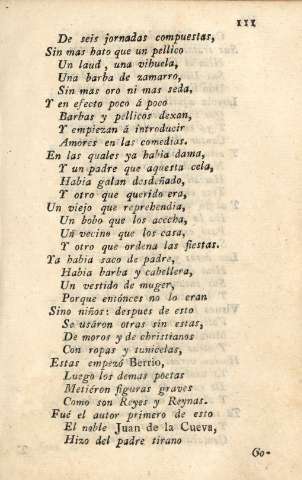 111
De seis jornadas compuestas,
Sin mas hato que un pellico
Un laud, una vihuela,
Una barba de zamarro,
Sin mas oro ni mas seda.
Y en efecto poco á poco
Barbas y pellicos dexan,
Y empiezan á introducir
Amores en las comedias.
En las quales ya habia dama,
Y un padre que aquesta cela,
Habia galan desdeñado,
Y otro que querido era,
Un viejo que reprehendia,
Un bobo que los acecha,
Un vecino que los casa,
Y otro que ordena las fiestas.
Ya habia saco de padre,
Habia barba y cabellera,
Un vestido de muger,
Porque entónces no lo eran
Sino niños: despues de esto
Se usáron otras sin estas,
De moros y de christianos
Con ropas y tunicelas,
Estas empezó Berrio,
Luego los demas poetas
Metiéron figuras graves
Como son Reyes y Reynas.
Fué el autor primero de esto
El noble Juan de la Cueva,
Hizo del padre tirano
Go-